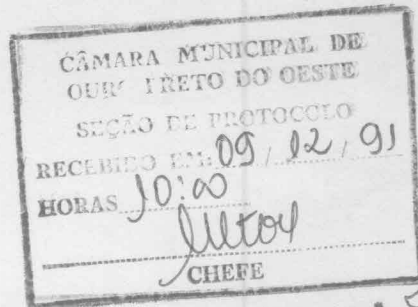 CÂMARA MUNICIPAL DE
OURO PRETO DO OESTE
SEÇÃO DE PROTOCOLO
RECEBIDO EM: 09 / 12 / 91
HORAS 10:00
CHEFE